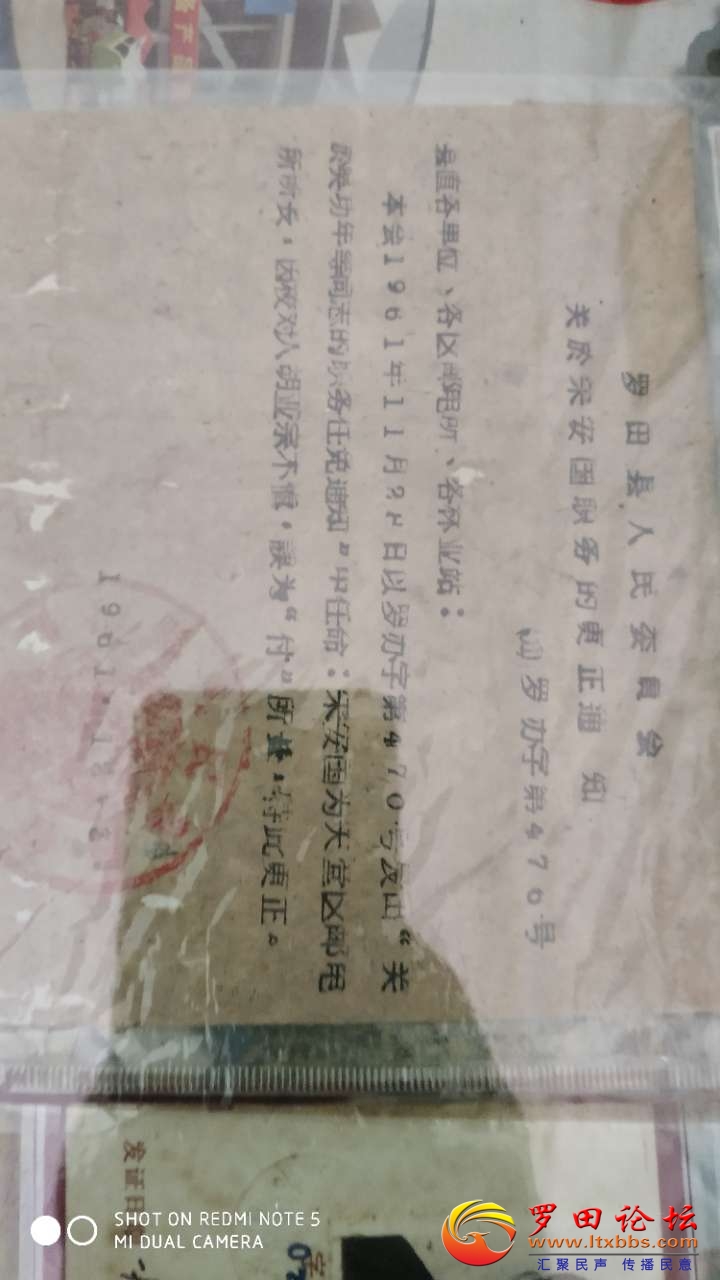 罗田县人民委员会
关於宋安国职务的更正通知
罗办字第476号
县直各单位、各区邮电所、各林业站:
本会1961年11月2日以罗办字第470号发出“关
幼年等同志的职务任免通知”中任命:宋安国为天堂区邮电
所所长,因校对人胡业余不慎,誤为“付”所长,特此更正。
1961.12.
发证日
SHOT ON REDMI NOTE 5
MI DUAL CAMERA
罗田论坛
www.ltxbbs.com
汇聚民声 传播民意